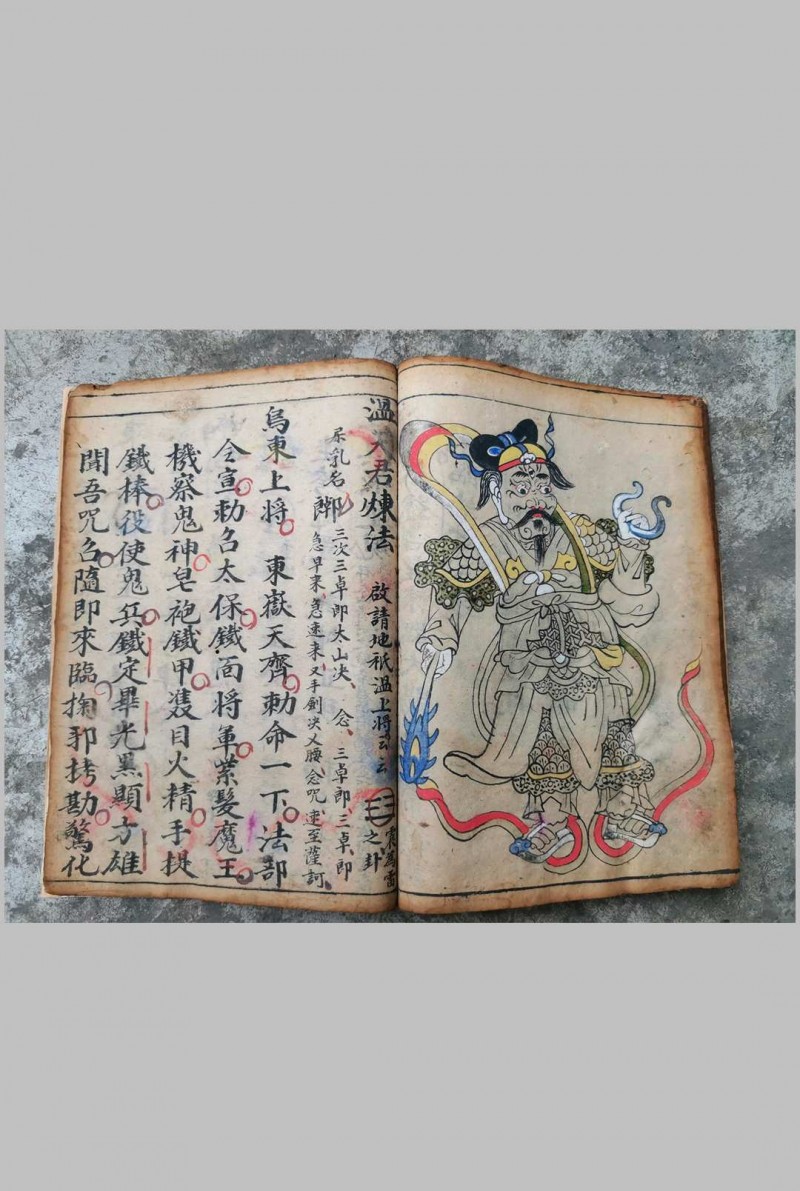 溫天君煉法 啟請地祇溫上將云云 ☳之卦 震為雷
乳名
三次三卓即太山決、念、三卓即三卓、即
急早來、急速來 又手劍決乂腰念咒、速至薩訶
烏東上將 東嶽天齊勅命一下法部
仝宣勅召太保鐵面將軍紫髮魔王
機察鬼神皂袍鐵甲㕠目火精手提
鐵棒役使鬼兵鐵定畢光黑顯方雄
聞吾咒召隨即來臨掏邪拷勘驚化